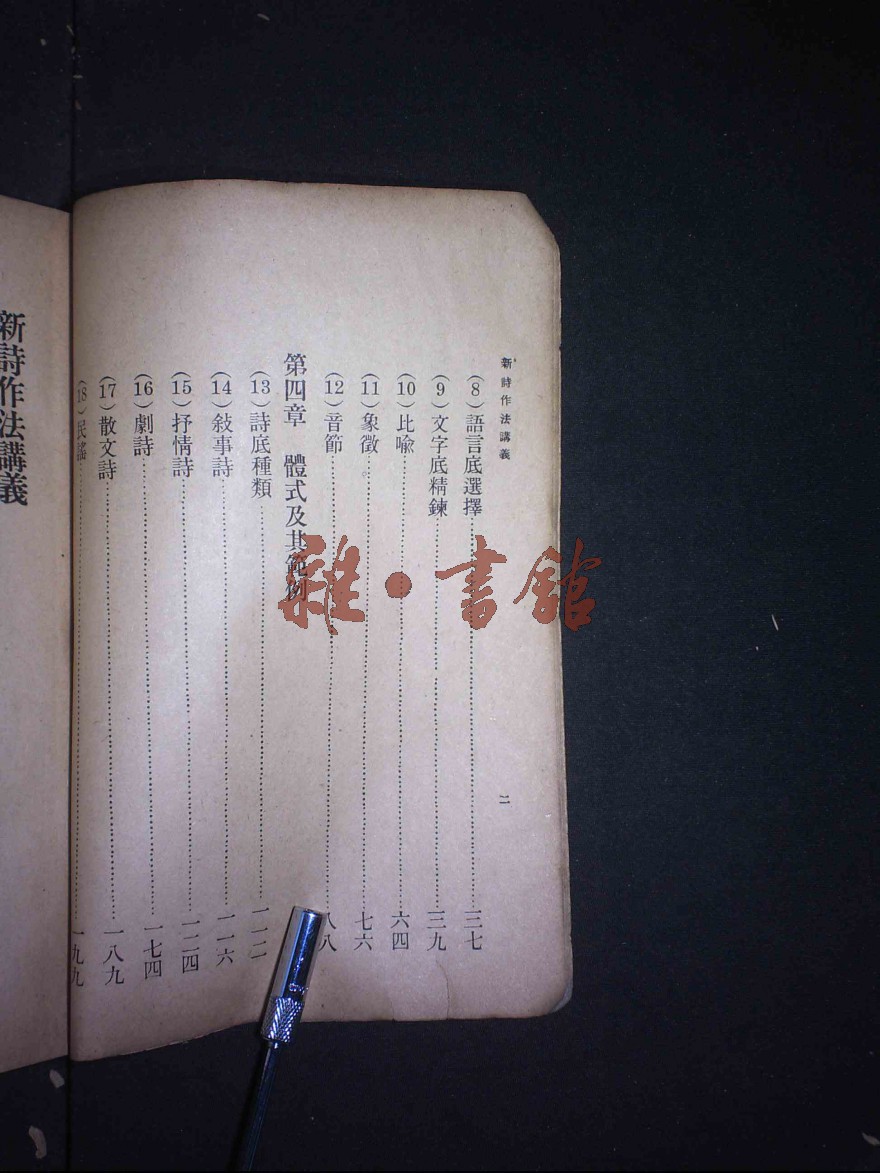 新詩作法講義
二
(8)語言底選擇……三七
(9)文字底精鍊……三九
(10)比喩……六四
(11)象徵……七六
(12)音節……八八
第四章　體式及其範例
(13)詩底種類……一一二
(14)敍事詩……一一六
(15)抒情詩……一二四
(16)劇詩……一七四
(17)散文詩……一八九
(18)民謠……一九九
新詩作法講義
雜·書館